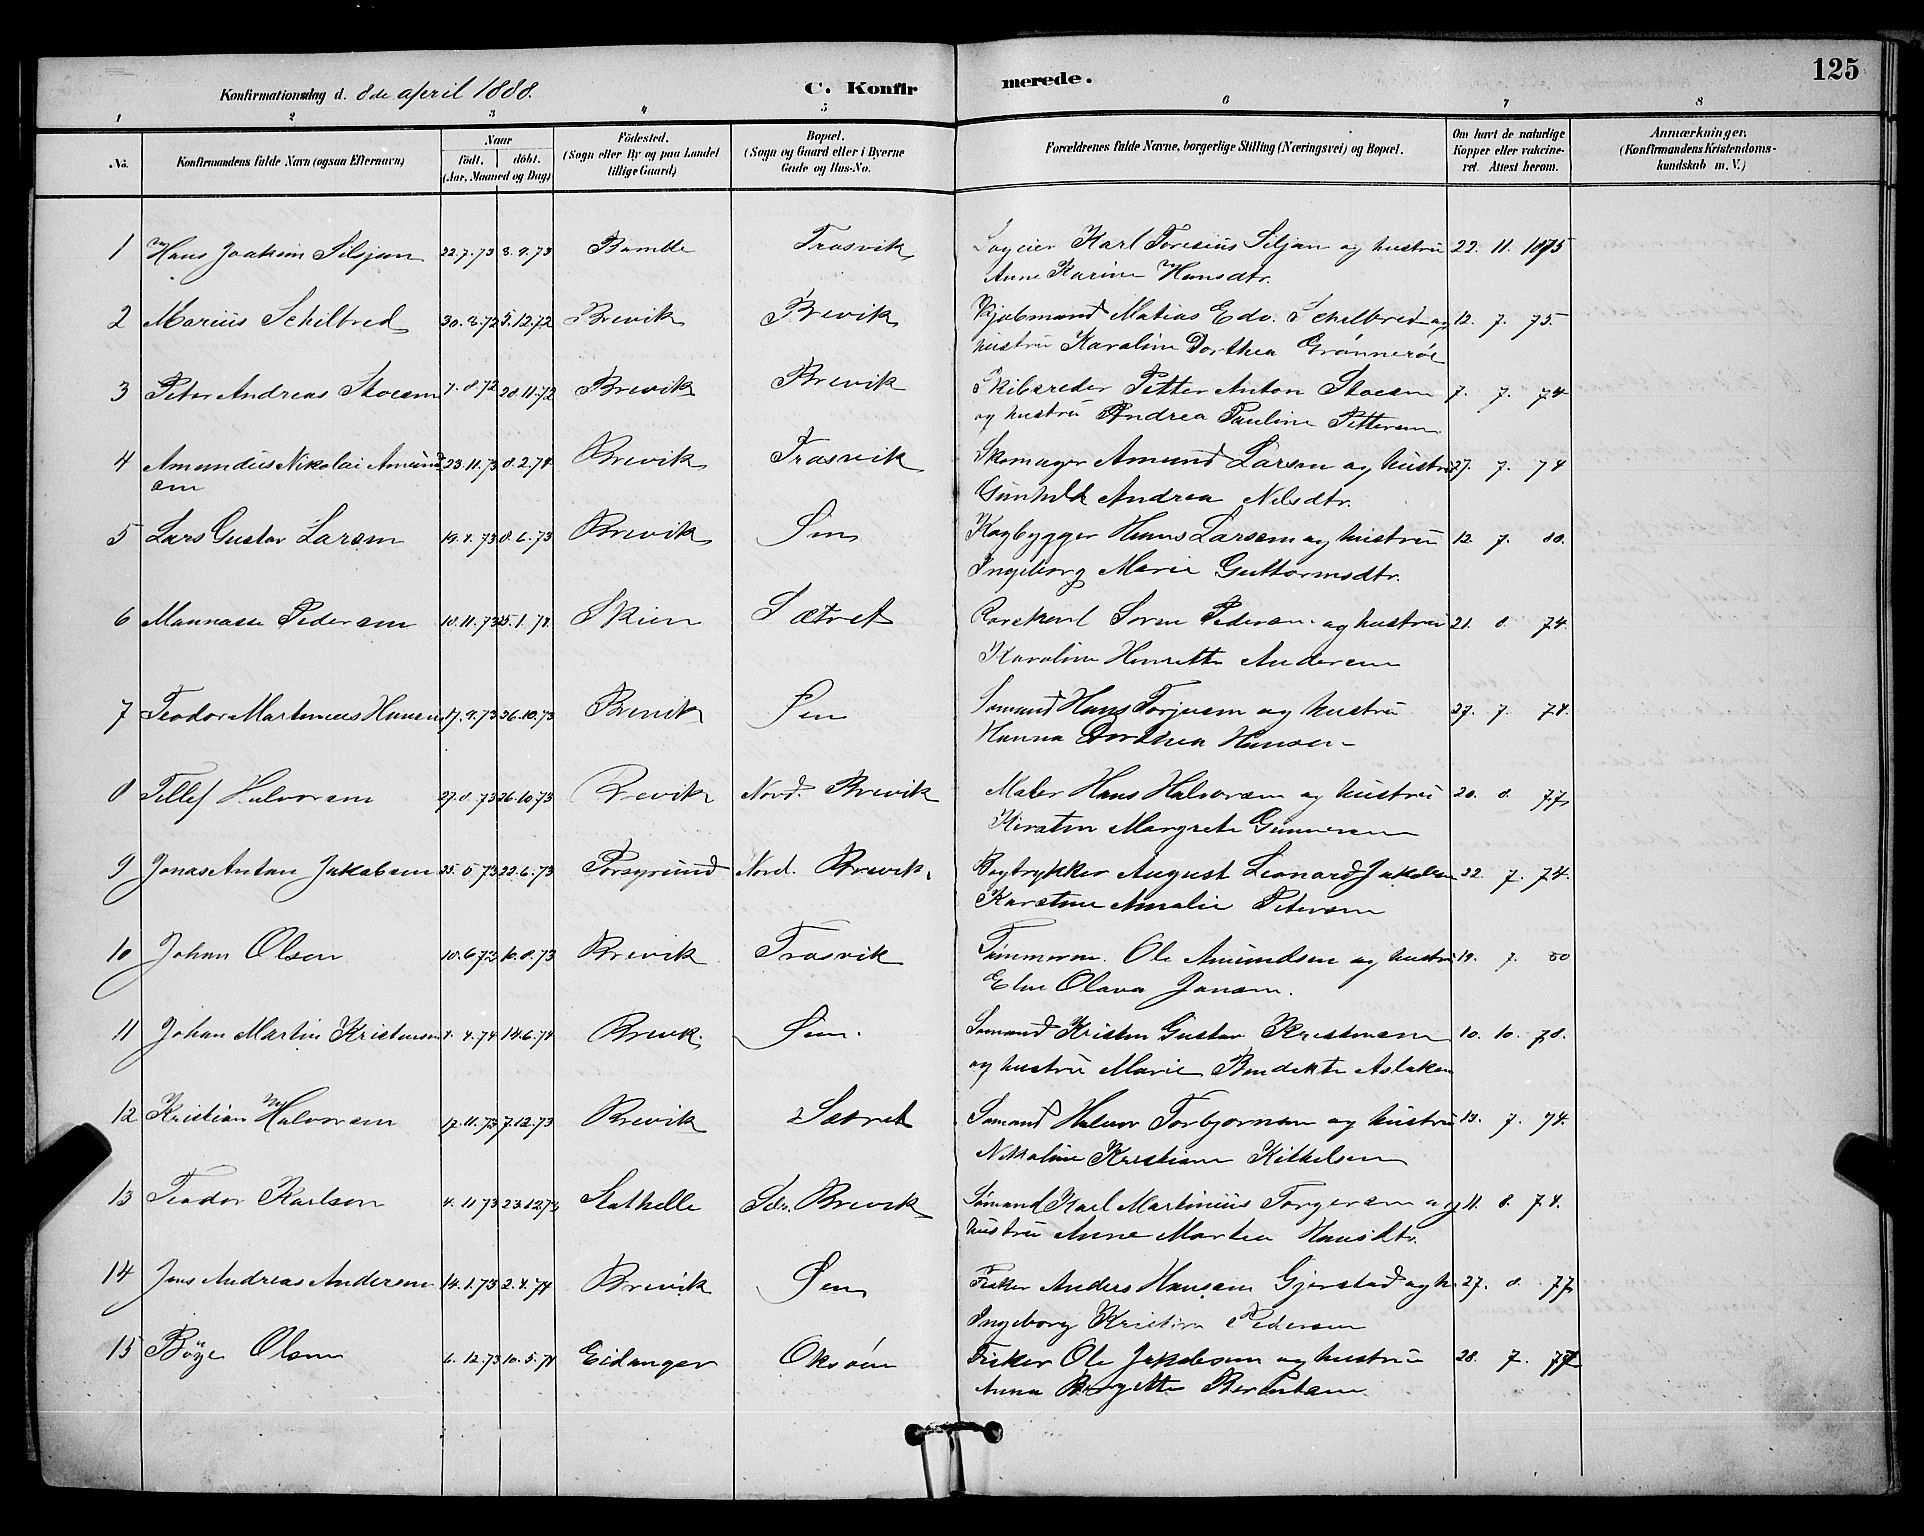 Konfirmationsdag d. 8de april 1888. C. Konfirmerede. 125
1 2 3 4 5 6 7 8
No. Konfirmandens fulde Navn (ogsaa Efternavn) Naar født, døbt. (Aar, Maaned og Dag) Fødested. (Sogn eller By og paa Landet tillige Gaard) Bopæl. (Sogn og Gaard eller i Byerne Gade og Hus-No. Forældrenes fulde Navne, borgerlige Stilling (Næringsvei) og Bopæl. Om havt de naturlige Kopper eller vakcineret. Attest herom. Anmærkninger. (Konfirmandens Kristendomskundskab m. V.)
1 Hans Joakim Siljan 22.7.73 Bamble Trosvik Karl Siljan og hustru 22. 11. 1875
Anne Karine Hansdtr.
2 Marius Schilbred 30.8.72 5.12.72 Brevik Brevik Matias Edv. Schilbred og 12. 7. 75.
hustru Karoline Dorthea Grønnerøe
3 Peter Andreas Stoesen 7.8.72 28.11.72 Brevik Brevik Skibsreder Petter Anton Stoesen 7. 7. 74
og hustru Andrea Pauline Pettersen
4 Amandus Nikolai Amund 23.11.73 8.2.74 Brevik Trosvik Skomager Amund Larsen og hustru 27. 7. 74
sen Gunhild Andrea Nilsdtr.
5 Lars Gustav Larsen 19.4.73 8.6.73 Brevik Øen Hans Larsen og hustru 12. 7. 80.
Ingeborg Marie Guttormsdtr.
6 Mannasse Pedersen 18.11.73 25.1.74 Skien Sætret Soren Pedersen og hustru 21. 8. 74.
Karoline Henrette Andersen
7 Teodor Martinius Hansen 17.9.73 26.10.73 Brevik Øen Sømand Hans Torjusen og hustru 27. 7. 74.
Hanna Dorthea Hansen
8 Tellef Halvorsen 27.8.73 26.10.73 Brevik Nord. Brevik Maler Hans Halvorsen og hustru 20. 8. 77
Kirsten Margrete Gunnersen
9 Jonas Anton Jakobsen 25.5.73 22.6.73 Porsgrund Nord. Brevik. Bogtrykker August Leonard Jakobsen 22. 7. 74.
Karstine Amalie Petersen
10 Johan Olsen 10.6.73 Brevik Trosvik Tømmerm. Ole Amundsen og hustru 19. 7. 80
Olava Jansen.
11 Johan Martin Kristensen 4.74 14.6.74 Brevik. Øen. Sømand Kristen Gustav Kristensen 10. 10. 78.
og hustru Marie Bendikte Aslaksen
12 Kristian Halvorsen 17.11.73 7.12.73 Brevik Sætret Sømand Halvor Torbjørnsen og hustru 13. 7. 74.
Nikoline Kristiane Kittelsen
13 Teodor Karlsen 4.11.73 Stathelle Brevik Sømand Karl Martinius Torgersen og 11. 8. 74.
hustru Anne Martea Hansdtr.
14 Jens Andreas Andersen 14.1.73 2.4.74 Brevik Øen Fisker Anders Hansen Gjerstad og h. 27. 8. 77
Ingeborg Kristine Pedersen
15 Böye Olsen 6.12.73 10.5.74 Eidanger Oksøen Fisker Ole Jakobsen og hustru 28. 7. 77
Anna Birgitte Berntsen